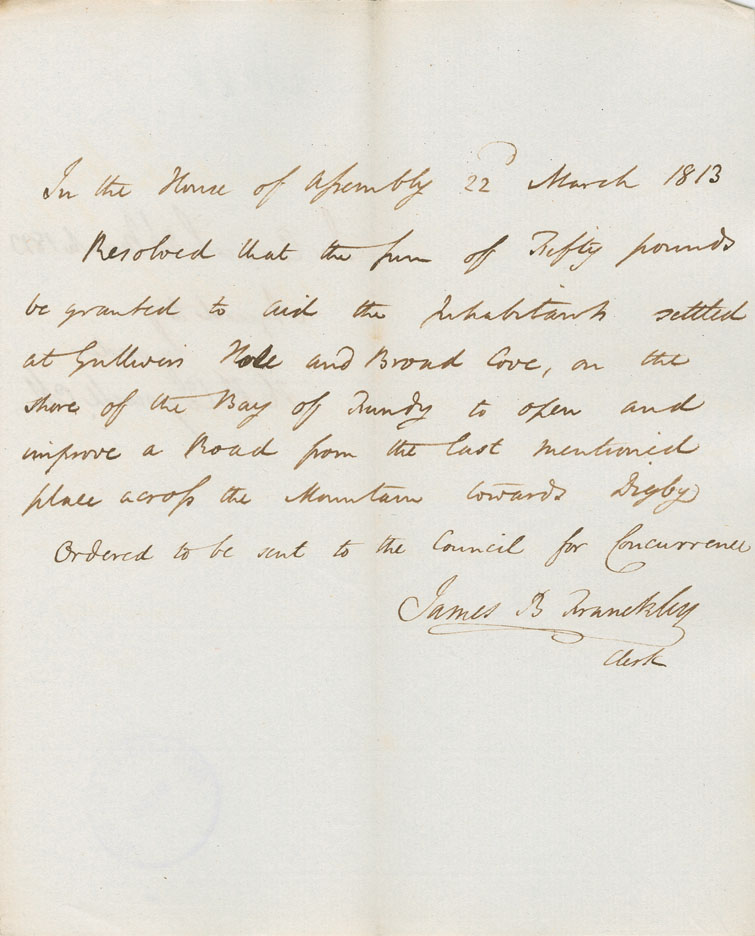 In the House of Assembly 22d March 1813
Resolved that the sum of Fifty pounds
be granted to aid the Inhabitants settled
at Gullivers Hole and Broad Cove, on the
shore of the Bay of Fundy to open and
improve a Road from the last mentioned
place across the Mountain towards Digby
Ordered to be sent to the Council for Concurrence
James B Franckley
Clerk